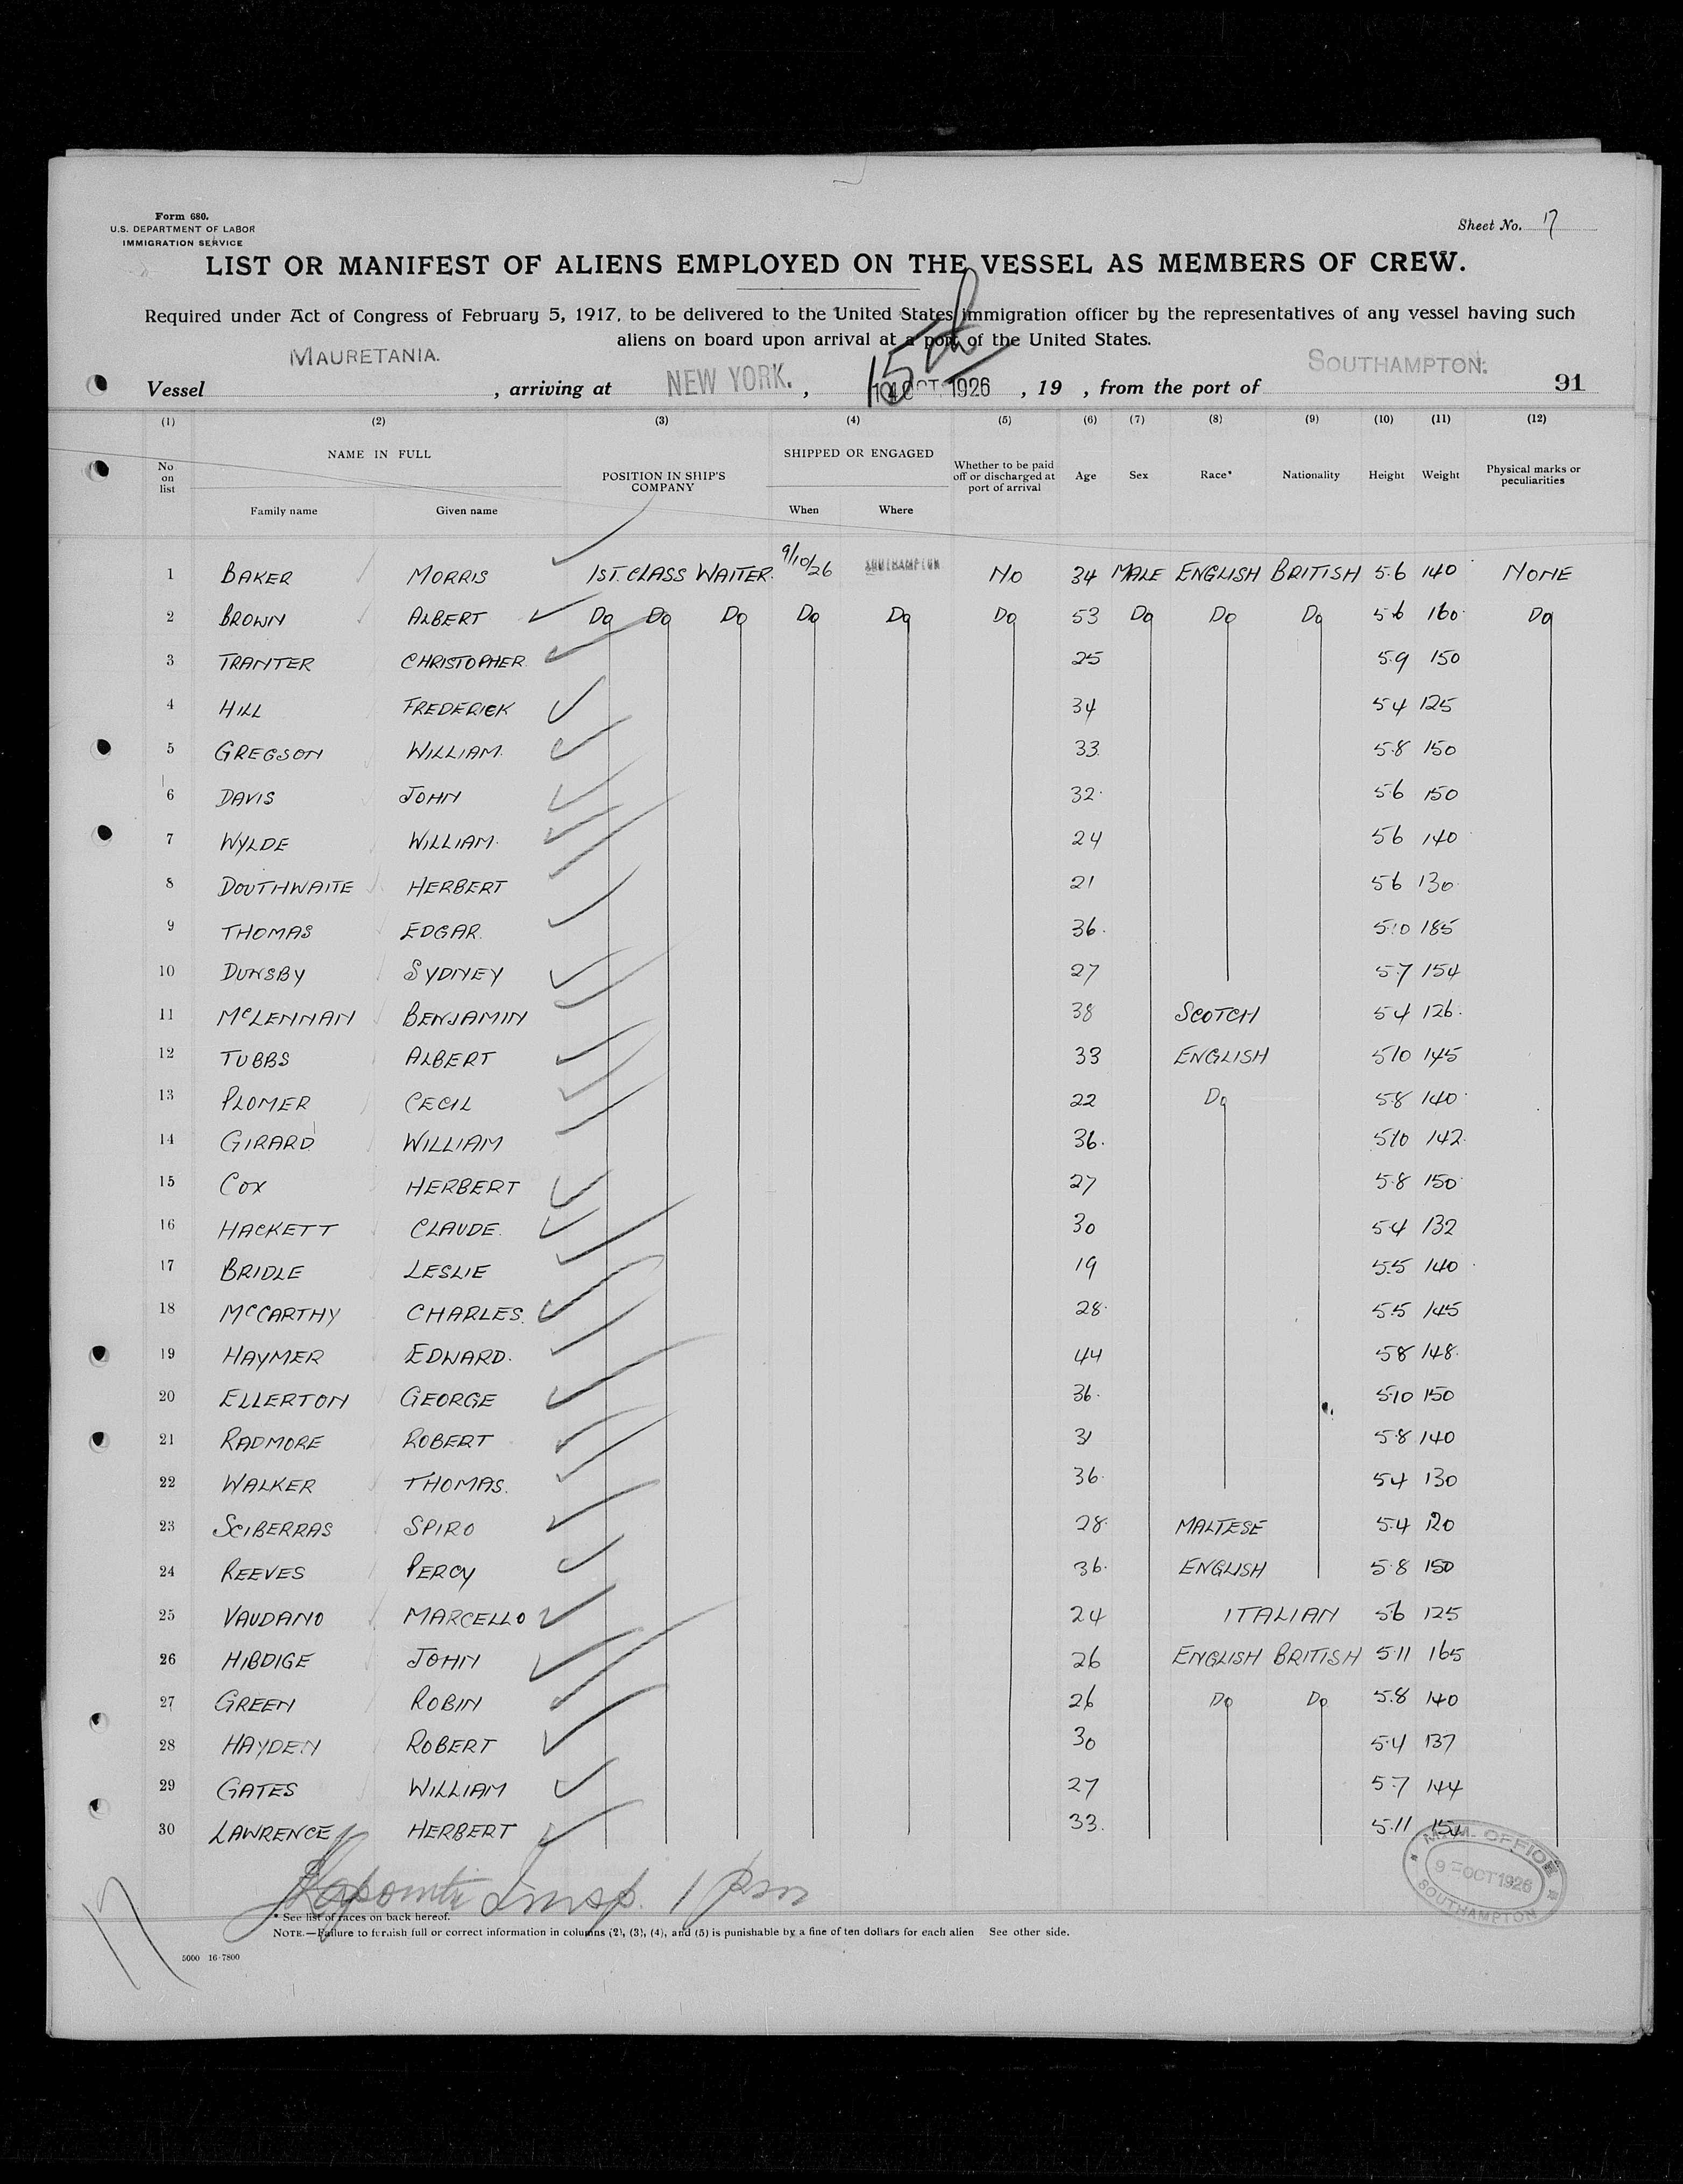 Form 680.
U.S. DEPARTMENT OF LABOR
IMMIGRATION SERVICE
Sheet No. 17
LIST OR MANIFEST OF ALIENS EMPLOYED ON THE VESSEL AS MEMBERS OF CREW.
Required under Act of Congress of February 5, 1917, to be delivered to the United States immigration officer by the representatives of any vessel having such
aliens on board upon arrival at a port of the United States.
15th
Vessel MAURETANIA. , arriving at NEW YORK. , OCT 1926 , 19 , from the port of SOUTHAMPTON. 91
(1) (2) (3) (4) (5) (6) (7) (8) (9) (10) (11) (12)
No on list NAME IN FULL Family name Given name POSITION IN SHIP'S COMPANY SHIPPED OR ENGAGED When Where Whether to be paid off or discharged at port of arrival Age Sex Race* Nationality Height Weight Physical marks or peculiarities
1 BAKER MORRIS 1ST. CLASS WAITER. 9/10/26 SOUTHAMPTON NO 34 MALE ENGLISH BRITISH 5.6 140 NONE
2 BROWN ALBERT Do Do Do Do Do Do 53 Do Do Do 5.6 160 Do
3 TRANTER CHRISTOPHER 25 5.9 150
4 HILL FREDERICK 34 5.4 125
5 GREGSON WILLIAM. 33 5.8 150
6 DAVIS JOHN 32 5.6 150
7 WYLDE WILLIAM. 24 5.6 140
8 DOUTHWAITE HERBERT 21 5.6 130
9 THOMAS EDGAR. 36 5.10 185
10 DUNSBY SYDNEY 27 5.7 154
11 McLENNAN BENJAMIN 38 SCOTCH 5.4 126
12 TUBBS ALBERT 33 ENGLISH 5.10 145
13 PLOMER CECIL 22 Do 5.8 140
14 GIRARD WILLIAM 36. 5.10 142
15 COX HERBERT 27 5.8 150
16 HACKETT CLAUDE. 30 5.4 132
17 BRIDLE LESLIE 19 5.5 140
18 McCARTHY CHARLES. 28 5.5 145
19 HAYMER EDWARD. 44 5.8 148
20 ELLERTON GEORGE 36 5.10 150
21 RADMORE ROBERT 31 5.8 140
22 WALKER THOMAS. 36 5.4 130
23 SCIBERRAS SPIRO 28 MALTESE 5.4 120
24 REEVES PERCY 36 ENGLISH 5.8 150
25 VAUDANO MARCELLO 24 ITALIAN 5.6 125
26 HIBDIGE JOHN 26 ENGLISH BRITISH 5.11 165
27 GREEN ROBIN 26 Do Do 5.8 140
28 HAYDEN ROBERT 30 5.4 137
29 GATES WILLIAM 27 5.7 144
30 LAWRENCE HERBERT 33. 5.11
M.M. OFFICE
9 OCT 1926
SOUTHAMPTON
Insp. 1 pm
17
* See list of races on back hereof.
NOTE.—Failure to furnish full or correct information in columns (2), (3), (4), and (5) is punishable by a fine of ten dollars for each alien See other side.
5000 16-7800